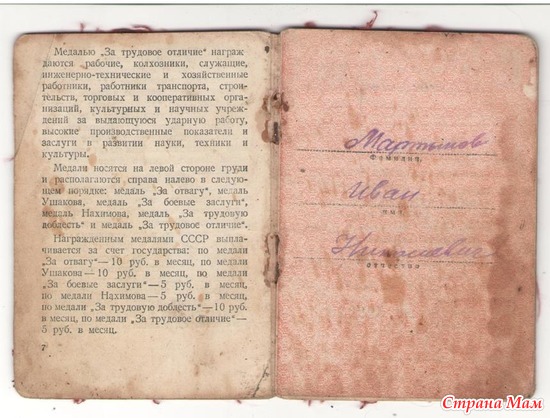 Медалью „За трудовое отличие" награж
даются рабочие, колхозники, служащие,
инженерно-технические и хозяйственные
работники, работники транспорта, строи-
тельств, торговых и кооперативных орга-
низаций, культурных и научных учреж-
дений за выдающуюся ударную работу,
высокие производственные показатели и
заслуги в развитии науки, техники и
культуры.
Медали носятся на левой стороне груди
и располагаются справа налево в следую-
щем порядке: медаль „За отвагу", медаль
Ушакова, медаль „За боевые заслуги",
медаль Нахимова, медаль „За трудовую
доблесть" и медаль „За трудовое отличие".
Награжденным медалями СССР выпла-
чивается за счет государства: по медали
„За отвагу" — 10 руб. в месяц, по медали
Ушакова — 10 руб. в месяц, по медали
„За боевые заслуги" — 5 руб. в месяц,
по медали Нахимова — 5 руб. в месяц,
по медали „За трудовую доблесть" — 10 руб.
в месяц, по медали „За трудовое отличие" —
5 руб. в месяц.
7
Мартынов
Фамилия
Иван
имя
Николаевич
отчество
Страна Мам